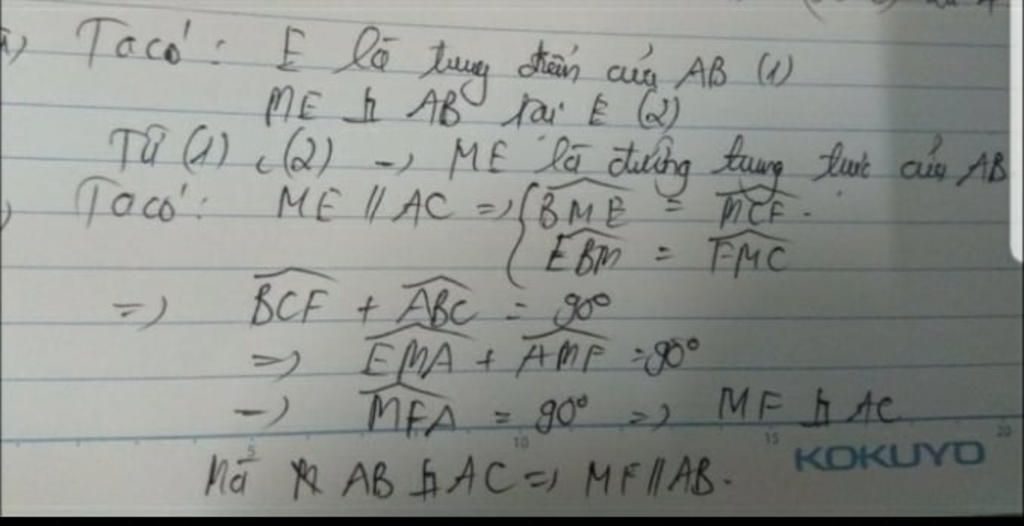 a) Ta có: E là trung điểm của AB (1)
ME ⊥ AB tại E (2)
Từ (1), (2) → ME là đường trung trực của AB
) Ta có: ME // AC => { BME = MCF.
EBM = FMC
=> BCF + ABC = 90°
=> EMA + AMF = 90°
→ MFA = 90° => MF ⊥ AC
Mà AB ⊥ AC => MF // AB.
5 10 15 20
KOKUYO